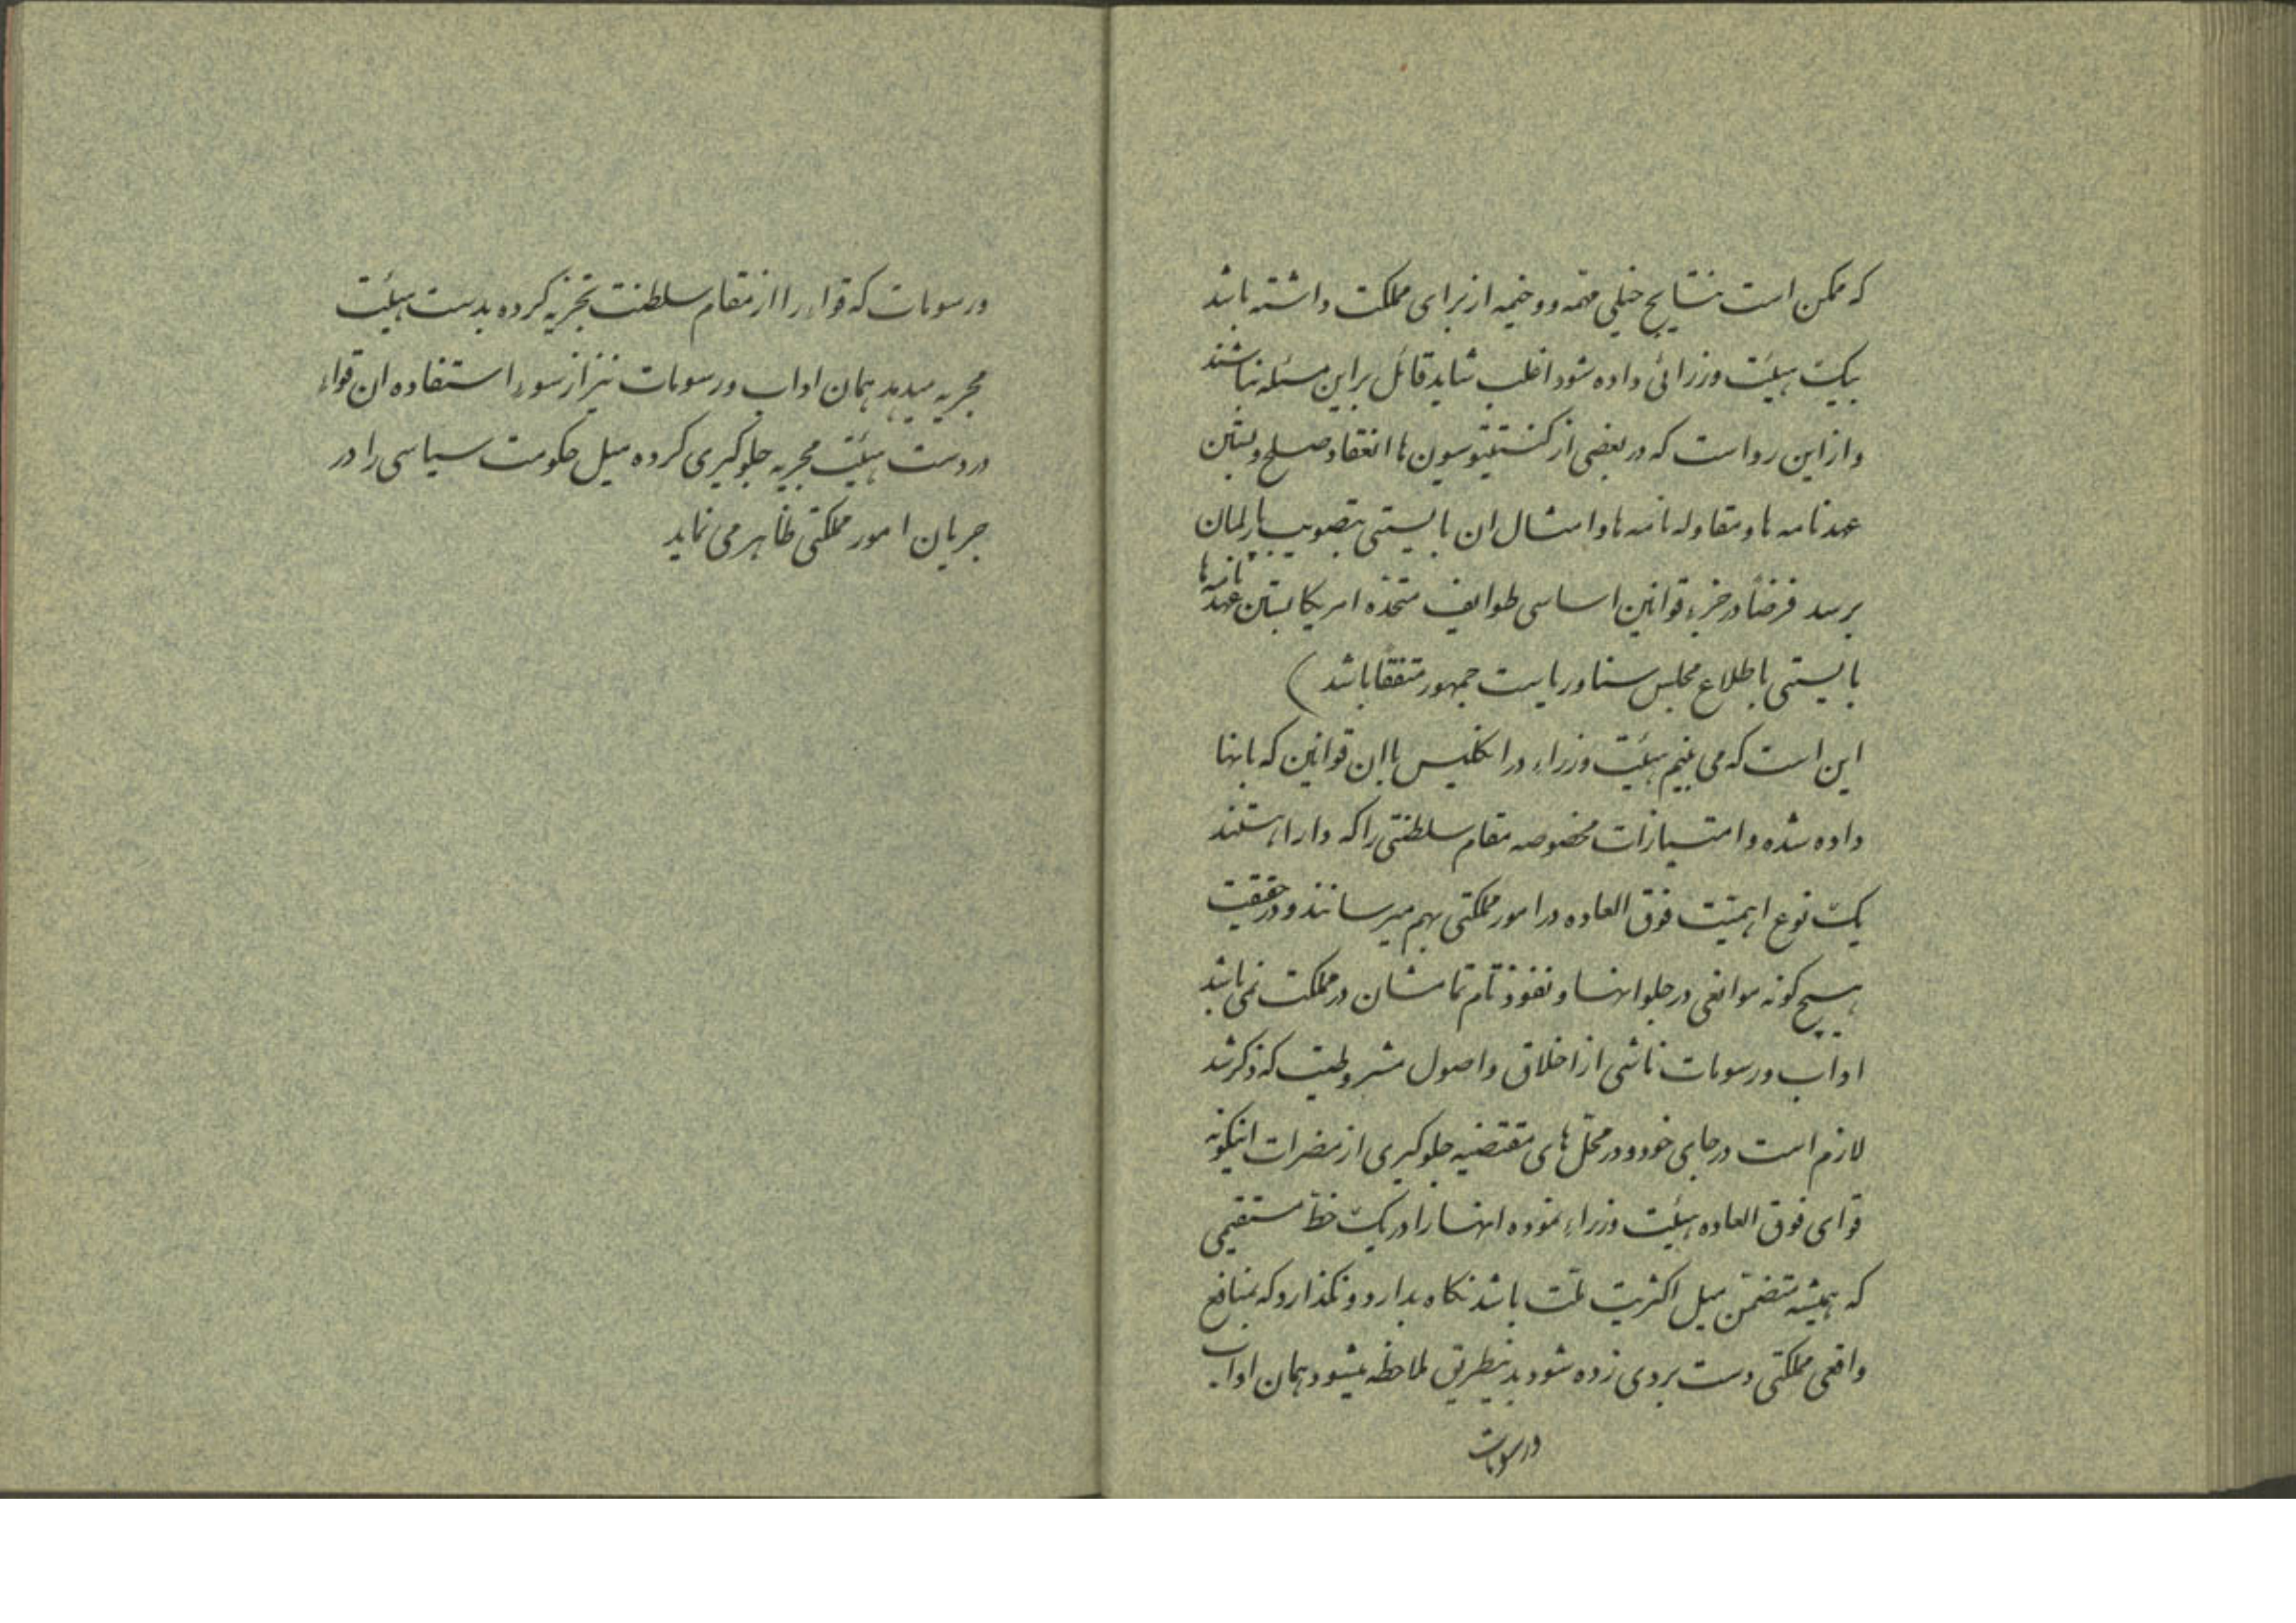 که ممکن است نتایج خیلی مهمه و وخیمه از برای مملکت داشته باشد
بیک هیئت وزرائی داده شود اغلب شاید قائل براین مسئله نباشند
و از این رو است که در بعضی از کنستیتوسیون ها انعقاد صلح و بستن
عهدنامه ها و مقاوله نامه ها و امثال ان بایستی بتصویب پارلمان
برسد فرضاً در جزء قوانین اساسی طوایف متحده امریکا بستن عهدنامه ها
بایستی باطلاع مجلس سنا و ریاست جمهور متفقاً باشد )
این است که می بینیم هیئت وزراء در انگلیس باان قوانین که بانها
داده شده و امتیازات مخصوصه مقام سلطنتی را که دارا هستند
یک نوع اهمیّت فوق العاده در امور مملکتی بهم میرسانند و در حقیقت
هیچ گونه موانعی در جلو انها و نفوذ تام تمامشان در مملکت نمی باشد
اداب و رسومات ناشی از اخلاق و اصول مشروطیت که ذکر شد
لازم است در جای خود و در محّل های مقتضیه جلوگیری از مضرات اینگونه
قوای فوق العاده هیئت وزراء نموده انها را در یک خطّ مستقیمی
که همیشه متضمّن میل اکثریت ملّت باشد نگاه بدارد و نگذارد که بمنافع
واقعی مملکتی دست بردی زده شود بدینطریق ملاحظه میشود همان اداب
ورسومات
ورسومات که قواء را از مقام سلطنت تجزیه کرده بدست هیئت
مجریه میدهد همان اداب و رسومات نیز از سوء استفاده ان قواء
در دست هیئت مجریه جلوگیری کرده میل حکومت سیاسی را در
جریان امور مملکتی ظاهر می نماید